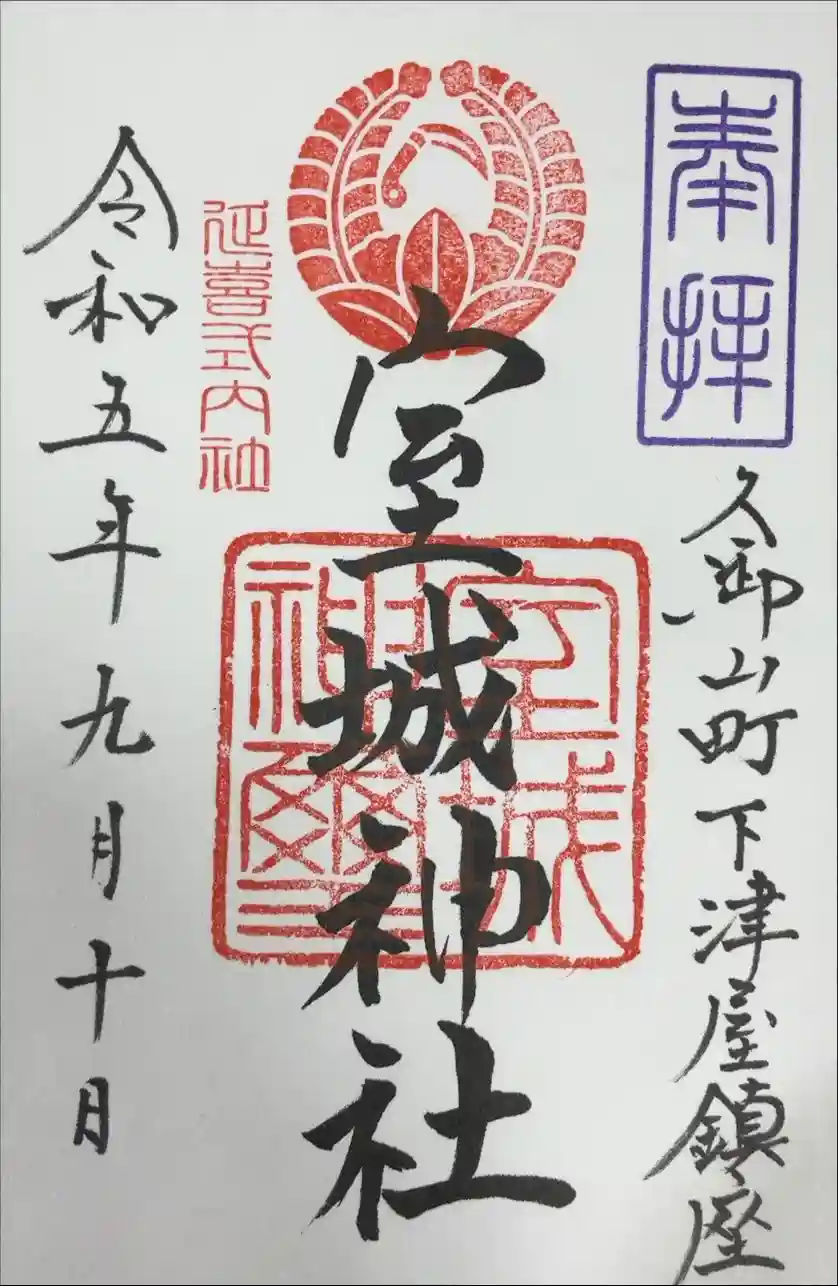 奉拝
久御山町下津屋鎮座
室城神社
室城
神璽
延喜式内社
令和五年九月十日